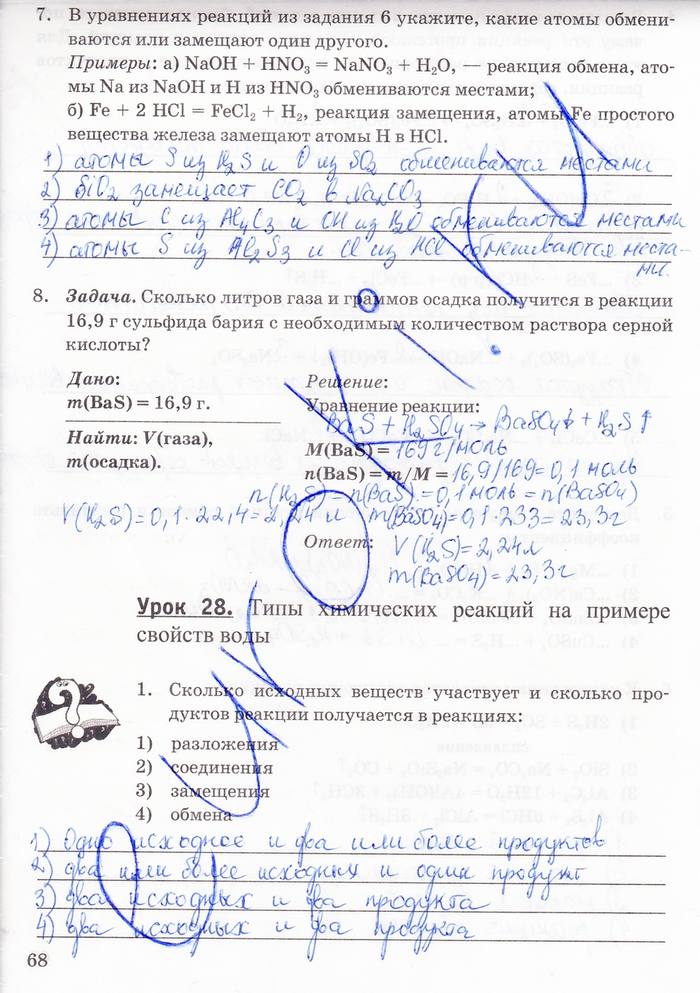 7. В уравнениях реакций из задания 6 укажите, какие атомы обмени-
ваются или замещают один другого.
Примеры: а) NaOH + HNO₃ = NaNO₃ + H₂O, — реакция обмена, ато-
мы Na из NaOH и H из HNO₃ обмениваются местами;
б) Fe + 2 HCl = FeCl₂ + H₂, реакция замещения, атомы Fe простого
вещества железа замещают атомы H в HCl.
1) атомы S из H₂S и O из SO₂ обмениваются местами
2) SiO₂ замещает CO₂ в Na₂CO₃
3) атомы C из Al₄C₃ и OH из H₂O обмениваются местами
4) атомы S из Al₂S₃ и Cl из HCl обмениваются места-
ми.
8. Задача. Сколько литров газа и граммов осадка получится в реакции
16,9 г сульфида бария с необходимым количеством раствора серной
кислоты?
Дано: Решение:
m(BaS) = 16,9 г. Уравнение реакции:
BaS + H₂SO₄ → BaSO₄↓ + H₂S↑
Найти: V(газа), M(BaS) = 169 г/моль
m(осадка). n(BaS) = m/M = 16,9/169 = 0,1 моль
n(H₂S) = n(BaS) = 0,1 моль = n(BaSO₄)
V(H₂S) = 0,1 · 22,4 = 2,24 л m(BaSO₄) = 0,1 · 233 = 23,3 г
Ответ: V(H₂S) = 2,24 л
m(BaSO₄) = 23,3 г
Урок 28. Типы химических реакций на примере
свойств воды
1. Сколько исходных веществ участвует и сколько про-
дуктов реакции получается в реакциях:
1) разложения
2) соединения
3) замещения
4) обмена
1) Одно исходное и два или более продуктов
2) два или более исходных и один продукт
3) два исходных и два продукта
4) два исходных и два продукта
68